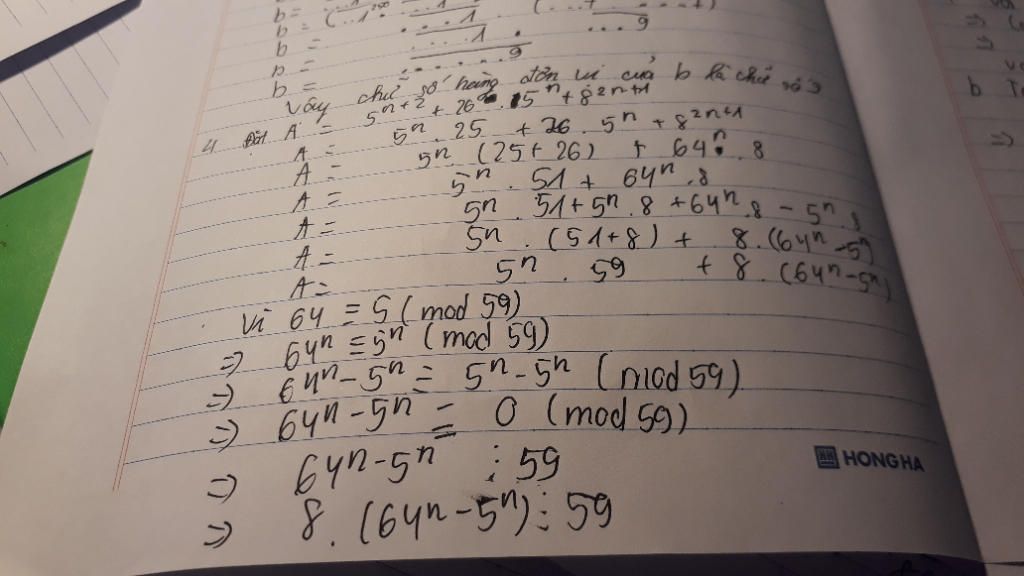 b =
b = (...1
b = ...1.
b = ...9
Vậy chữ số hàng đơn vị của b là chữ số 9
4 Đặt A = 5ⁿ⁺² + 26 . 5ⁿ + 8²ⁿ⁺¹
A = 5ⁿ . 25 + 26 . 5ⁿ + 8²ⁿ⁺¹
A = 5ⁿ (25 + 26) + 64ⁿ . 8
A = 5ⁿ . 51 + 64ⁿ . 8
A = 5ⁿ . 51 + 5ⁿ . 8 + 64ⁿ . 8 - 5ⁿ . 8
A = 5ⁿ . (51 + 8) + 8 . (64ⁿ - 5ⁿ)
A = 5ⁿ . 59 + 8 . (64ⁿ - 5ⁿ)
Vì 64 ≡ 5 (mod 59)
=> 64ⁿ ≡ 5ⁿ (mod 59)
=> 64ⁿ - 5ⁿ ≡ 5ⁿ - 5ⁿ (mod 59)
=> 64ⁿ - 5ⁿ ≡ 0 (mod 59)
=> 64ⁿ - 5ⁿ ⋮ 59
HONG HA
=> 8 . (64ⁿ - 5ⁿ) ⋮ 59